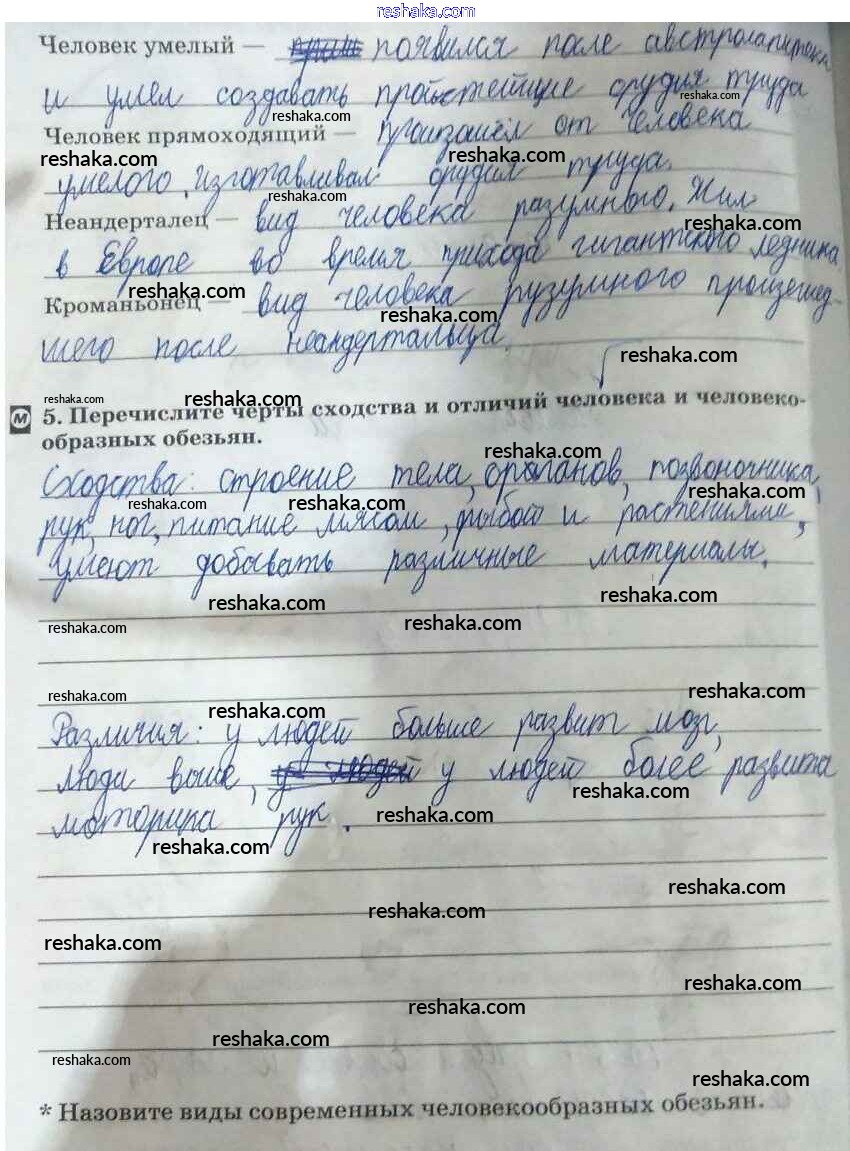 reshaka.com
Человек умелый — появился после австролапитека
и умел создавать простейщие орудия труда
reshaka.com
reshaka.com
Человек прямоходящий — произашёл от человека
reshaka.com
reshaka.com
умелого, изготавливал орудия труда.
reshaka.com
Неандерталец — вид человека разумного. Жил
reshaka.com
в Европе во время прихода гигантского ледника.
reshaka.com
Кроманьонец — вид человека рузумного произешед-
reshaka.com
шего после неандертальца.
reshaka.com
reshaka.com
reshaka.com
М 5. Перечислите черты сходства и отличий человека и человеко-
образных обезьян.
reshaka.com
Сходства: строение тела, органов, позвоночника,
reshaka.com
reshaka.com
reshaka.com
рук, ног, питание мясом, рыбой и растениями,
умеют добывать различные материалы.
reshaka.com
reshaka.com
reshaka.com
reshaka.com
reshaka.com
reshaka.com
reshaka.com
Различия: у людей больше развит мозг,
reshaka.com
люди выше, у людей у людей более развита
reshaka.com
моторика рук.
reshaka.com
reshaka.com
reshaka.com
reshaka.com
reshaka.com
reshaka.com
reshaka.com
reshaka.com
reshaka.com
reshaka.com
* Назовите виды современных человекообразных обезьян.